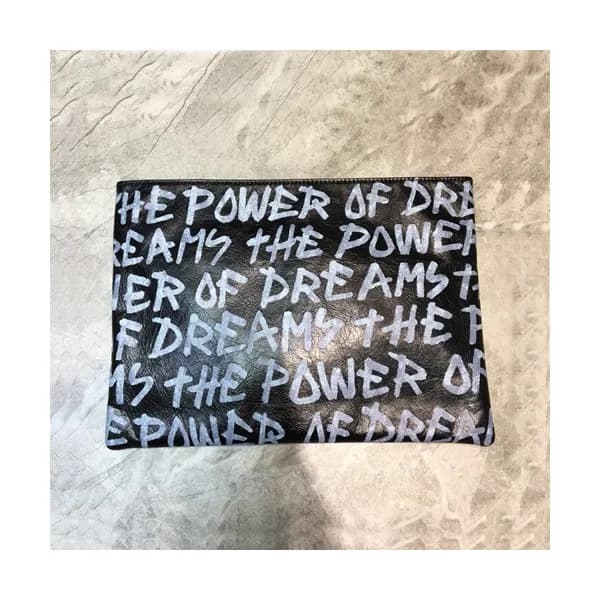 THE POWER OF DRE
REAMS THE POWER
ER OF DREAMS T
F DREAMS THE P
MS THE POWER OF
E POWER OF DREAM